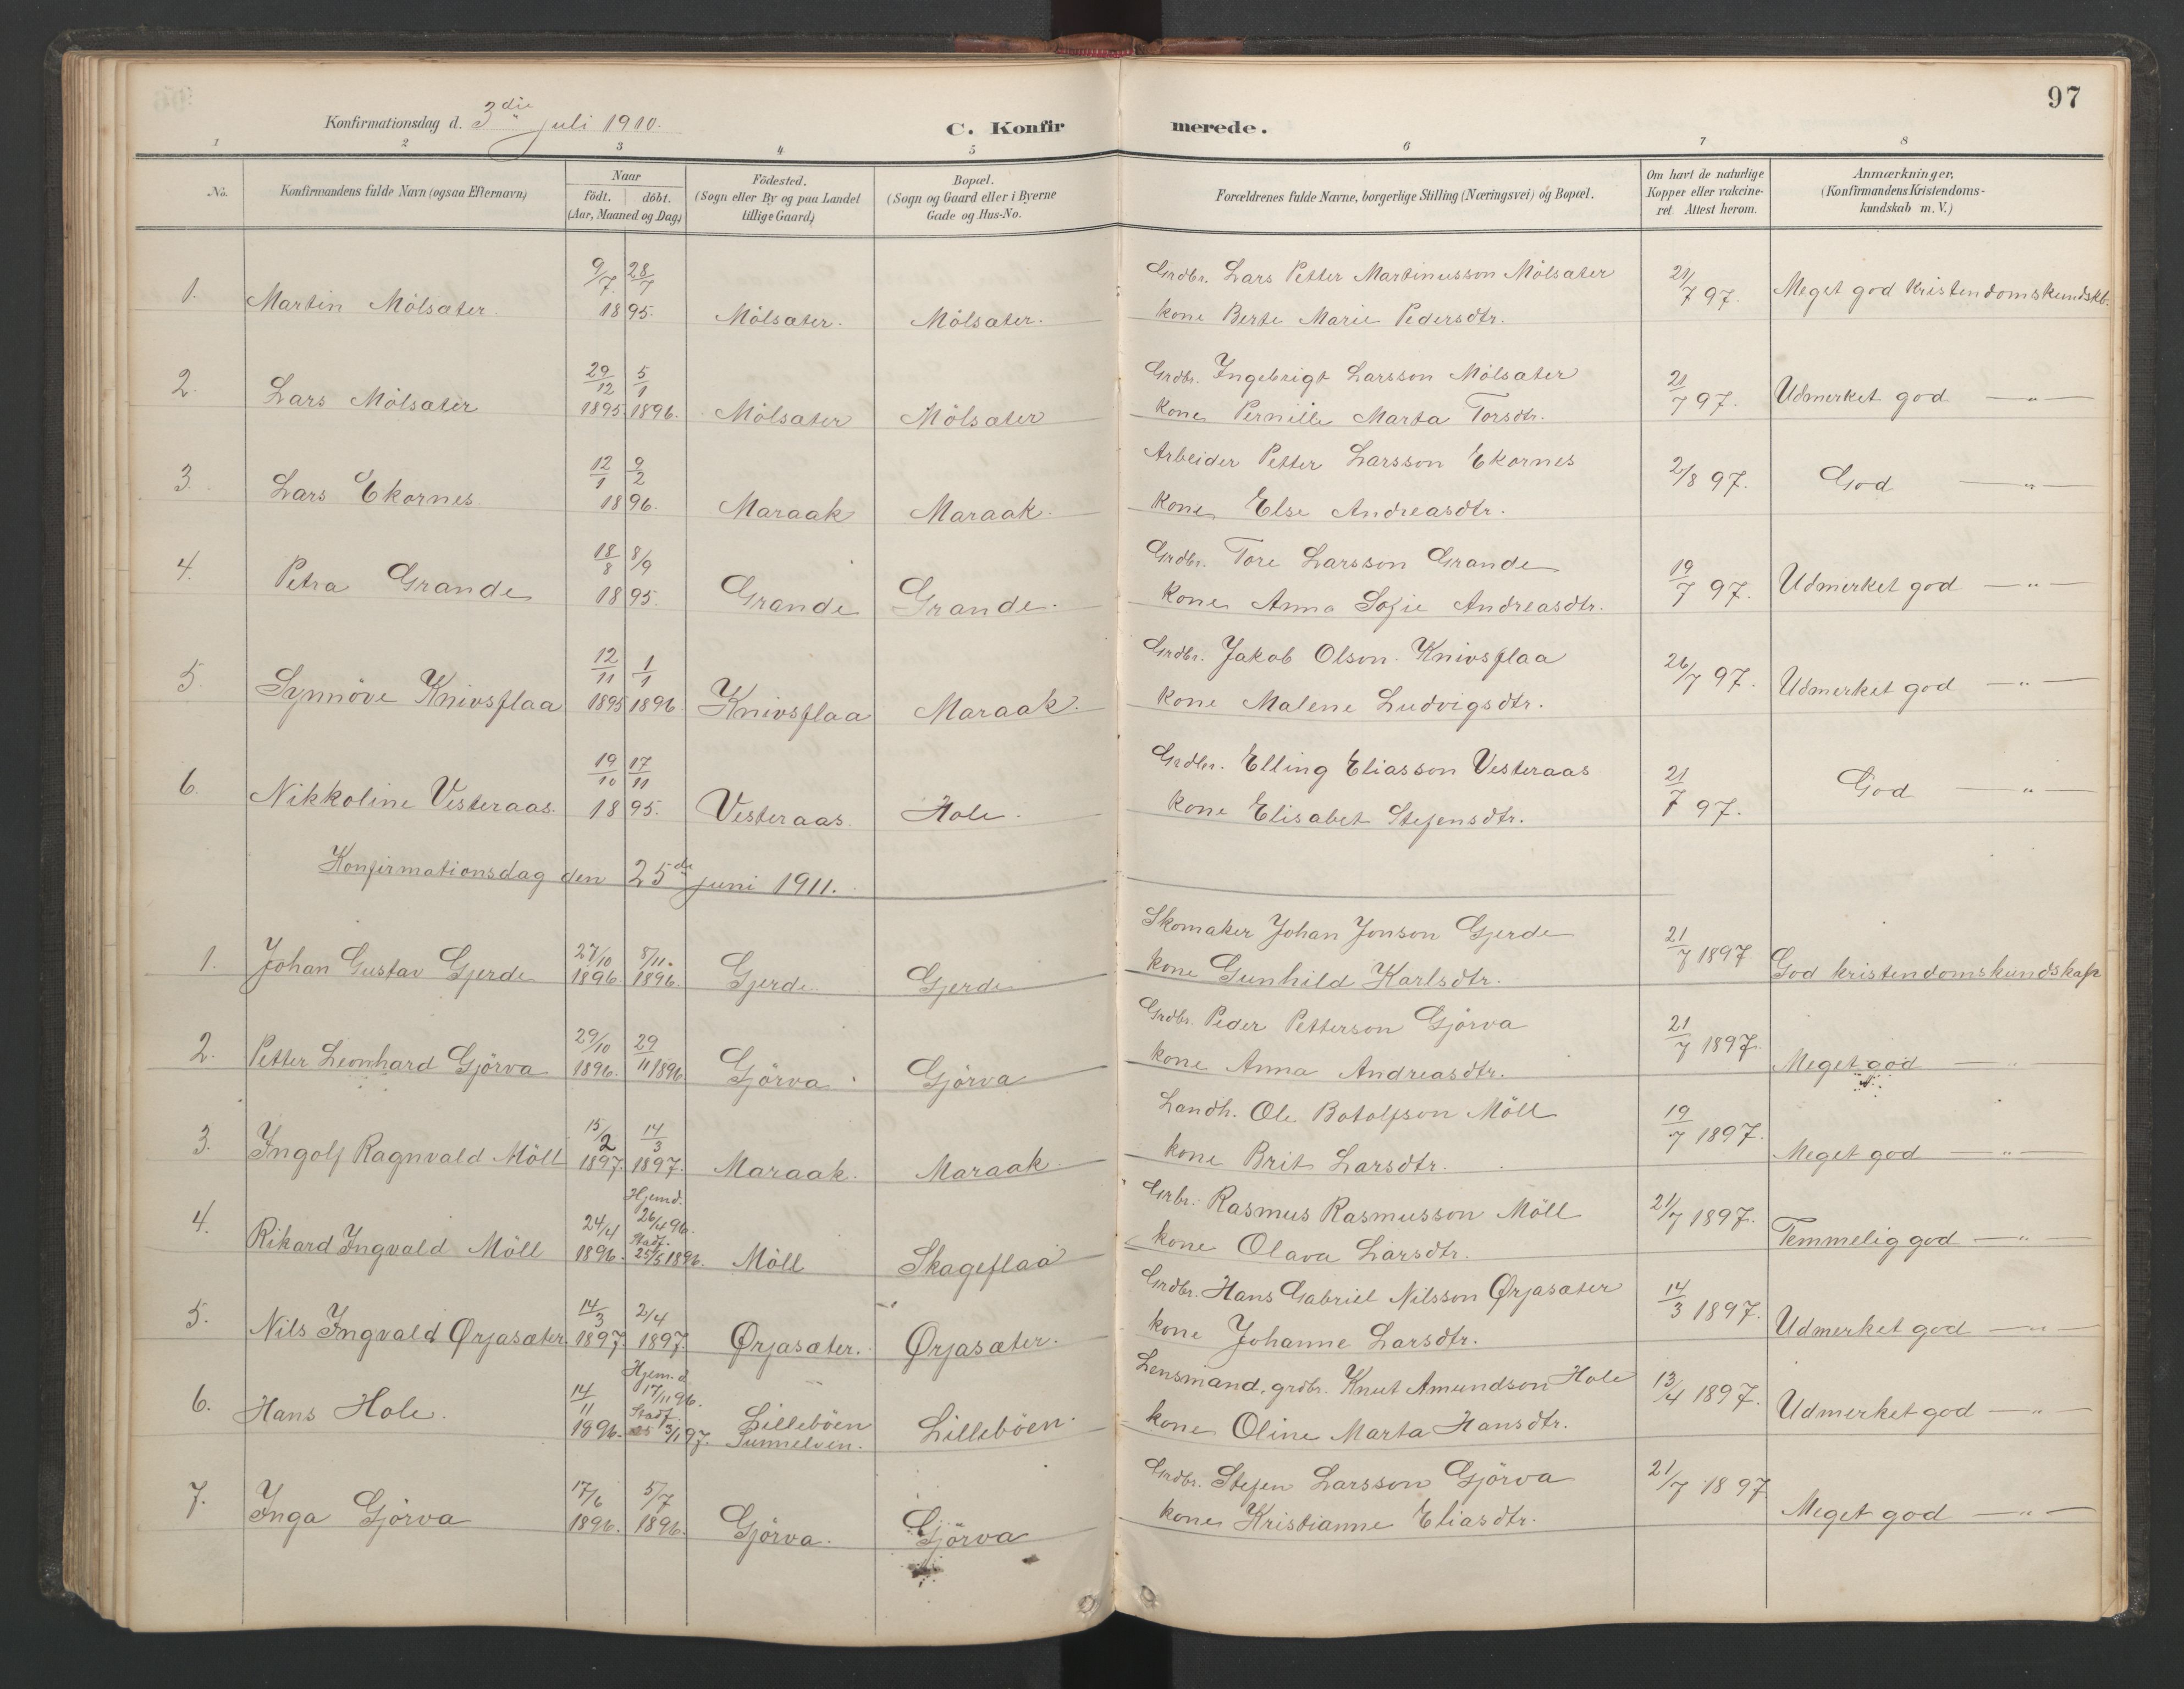 97
Konfirmationsdag d. 3die juli 1910.
C. Konfirmerede.
1 2 3 4 5 6 7 8
No.
Konfirmandens fulde Navn (ogsaa Efternavn)
Naar
födt. döbt.
(Aar, Maaned og Dag)
Födested.
(Sogn eller By og paa Landet
tillige Gaard)
Bopæl.
(Sogn og Gaard eller i Byerne
Gade og Hus-No.
Forældrenes fulde Navne, borgerlige Stilling (Næringsvei) og Bopæl.
Om havt de naturlige
Kopper eller vakcine-
ret Attest herom.
Anmærkninger.
(Konfirmandens Kristendoms-
kundskab m. V.)
1. Martin Mölsæter. 9/7 28/7 1895. Mölsæter. Mölsæter. Grdbr. Lars Petter Martinusson Mölsæter 21/7 97. Meget god Kristendomskundskb.
kone Berte Marie Pedersdtr.
2. Lars Mölsæter 29/12 1895 5/1 1896. Mölsæter Mölsæter Grdbr. Ingebrigt Larsson Mölsæter 21/7 97. Udmerket god —"—
kone Pernille Marta Torsdtr.
3. Lars Ekornes 12/1 9/2 1896. Maraak Maraak. Arbeider Petter Larsson Ekornes 2/8 97. God —"—
kone Else Andreasdtr.
4. Petra Grande 18/8 8/9 1895. Grande Grande. Grdbr. Tore Larsson Grande 19/7 97. Udmerket god —"—
kone Anna Sofie Andreasdtr.
5. Synnöve Knivsflaa 12/11 1895 1/1 1896. Knivsflaa Maraak. Grdbr. Jakob Olson Knivsflaa 26/7 97. Udmerket god —"—
kone Malene Ludvigsdtr.
6. Nikkoline Vesteraas. 19/10 17/11 1895. Vesteraas. Hole. Grdbr. Elling Eliasson Vesteraas 21/7 97. God —"—
kone Elisabet Stefensdtr.
Konfirmationsdag den 25de juni 1911.
1. Johan Gustav Gjerde 27/10 1896. 8/11. 1896. Gjerde Gjerde Skomaker Johan Jonson Gjerde 21/7 1897. God kristendomskundskap
kone Gunhild Karlsdtr.
2. Petter Leonhard Gjörva 29/10 1896. 29/11 1896 Gjörva Gjörva Grdbr. Peder Petterson Gjörva 21/7 1897. Meget god —"—
kone Anna Andreasdtr.
3. Ingolf Ragnvald Möll 15/2 1897. 14/3 1897. Maraak. Maraak. Landh. Ole Botolfson Möll 19/7 1897. Meget god —"—
kone Brit Larsdtr.
4. Rikard Ingvald Möll 24/4 1896. Hjemd. 26/4 96. Stadf. 25/5 1896. Möll Skageflaa Grbr. Rasmus Rasmusson Möll 21/7 1897. Temmelig god —"—
kone Olava Larsdtr.
5. Nils Ingvald Ørjasæter 14/3 1897. 2/4 1897. Ørjasæter. Ørjasæter. Grdbr. Hans Gabriel Nilsson Ørjasæter 14/3 1897. Udmerket god —"—
kone Johanne Larsdtr.
6. Hans Hole. 14/11 1896. Hjem.d 17/11 96. Stadf. 3/1 97. Lilleböen Sunnelven. Lilleböen. Lensmand, grdbr. Knut Amundson Hole 13/4 1897. Udmerket god —"—
kone Oline Marta Hansdtr.
7. Inga Gjörva 17/6 1896. 5/7 1896. Gjörva. Gjörva Grdbr. Stefen Larsson Gjörva 21/7 1897 Meget god —"—
kone Kristianne Eliasdtr.